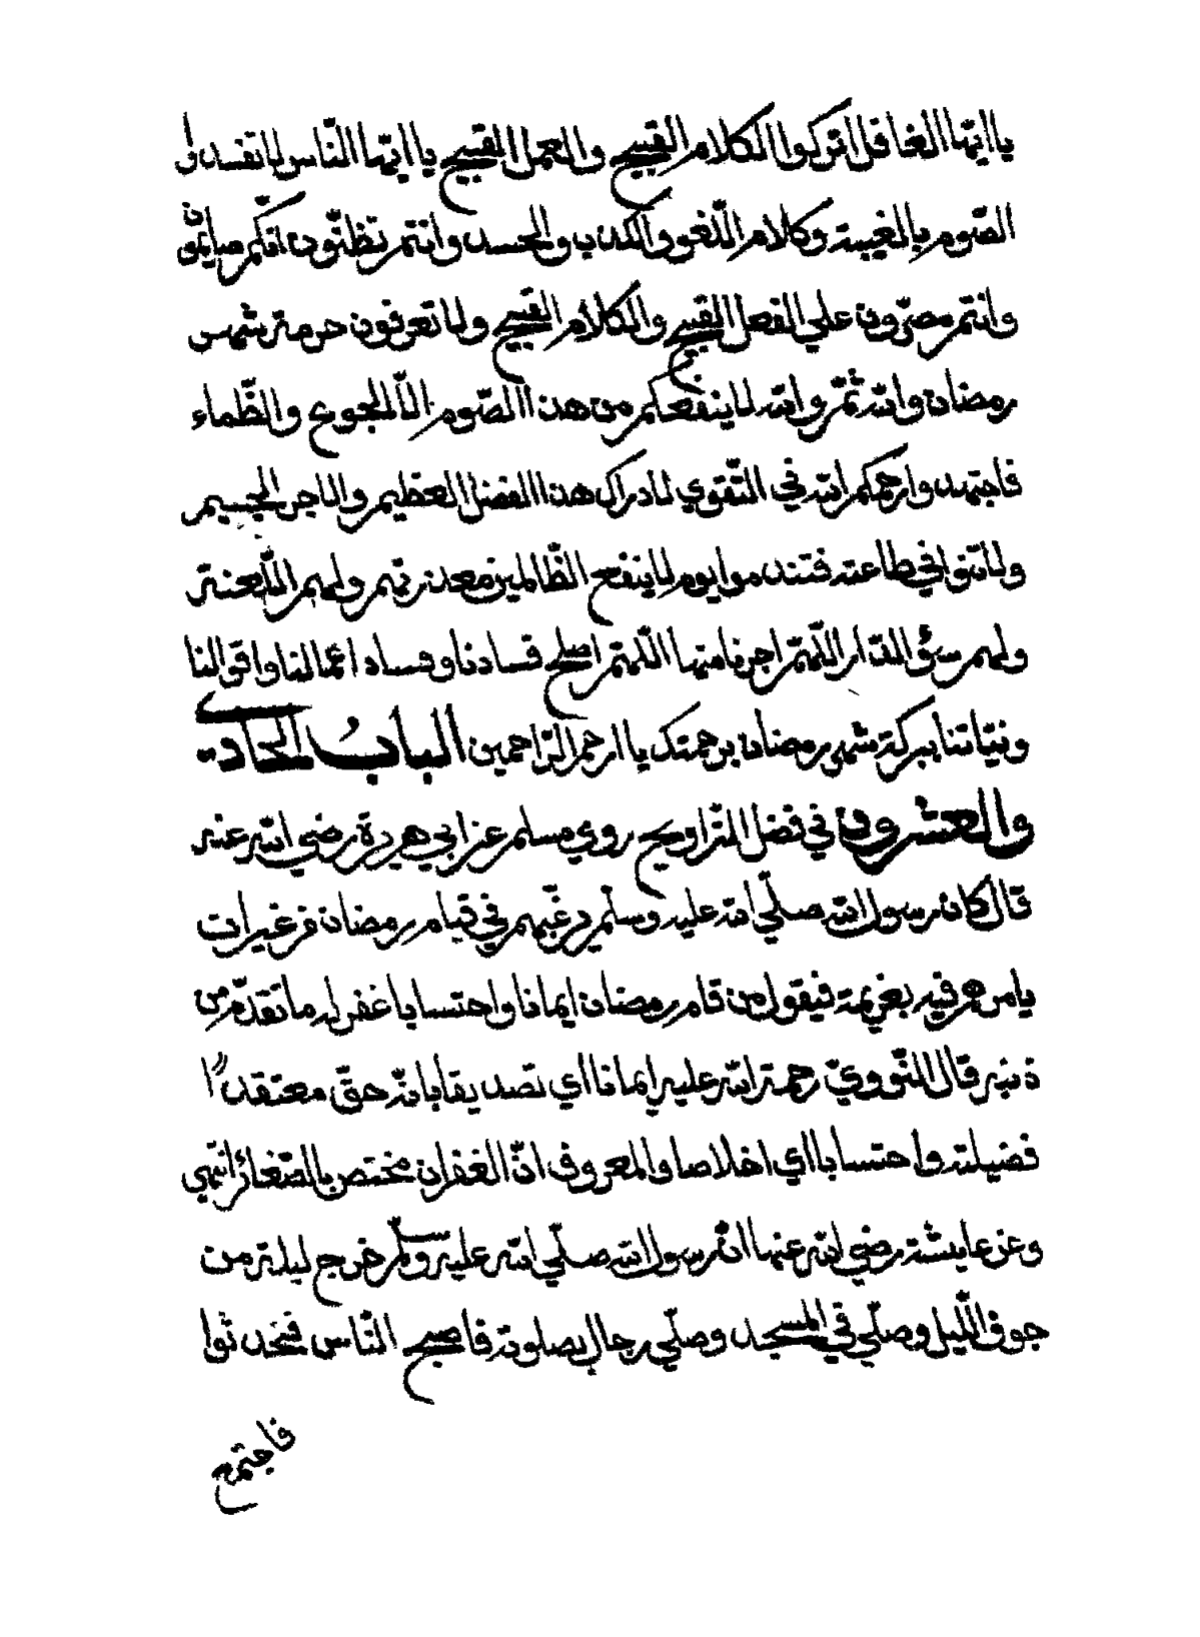 يا ايّها الغافل اتركوا الكلام القبيح والعمل القبيح يا ايّها النّاس لا تفسدوا
الصّوم بالغيبة وكلام اللّغو والكذب والحسد وانتم تظنّون انّكم صايمون
وانتم مصرّون علي الفعل القبيح والكلام القبيح ولا تعرفون حرمة شهر
رمضان والله ثمّ والله لا ينفعكم من هذا الصّوم الّا الجوع والظّماء
فاجتهدوا رحمكم الله في التّقوي لادراك هذا الفضل العظيم والاجر الجسيم
ولا تنوا في طاعته فتندموا يوم لا ينفع الظّالمين معذرتهم ولهم اللّعنة
ولهم سؤ الدّار اللّهمّ اجرنا منها اللّهمّ اصلح فسادنا وفساد اعمالنا واقوالنا
ونيّاتنا ببركة شهر رمضان برحمتك يا ارحم الرّاحمين البابُ الحادي
والعشرون في فضل التّراويح روي مسلم عن ابي هريرة رضي الله عنه
قال كان رسول الله صلّي الله عليه وسلّم يرغّبهم في قيام رمضان من غير ان
يامرهم فيه بعزيمة فيقول من قام رمضان ايمانا واحتسابا غفر له ما تقدّم من
ذنبه قال النّوويّ رحمة الله عليه ايمانا اي تصديقا بانّه حقّ معتقدًا
فضيلته واحتسابا اي اخلاصا والمعروف انّ الغفران مختص بالصّغائر انتهي
وعن عايشة رضي الله عنها انّ رسول الله صلّي الله عليه وسلّم خرج ليلة من
جوف اللّيل وصلّي في المسجد وصلّي رجال بصلوته فاصبح النّاس فتحدثوا
فاجتمع